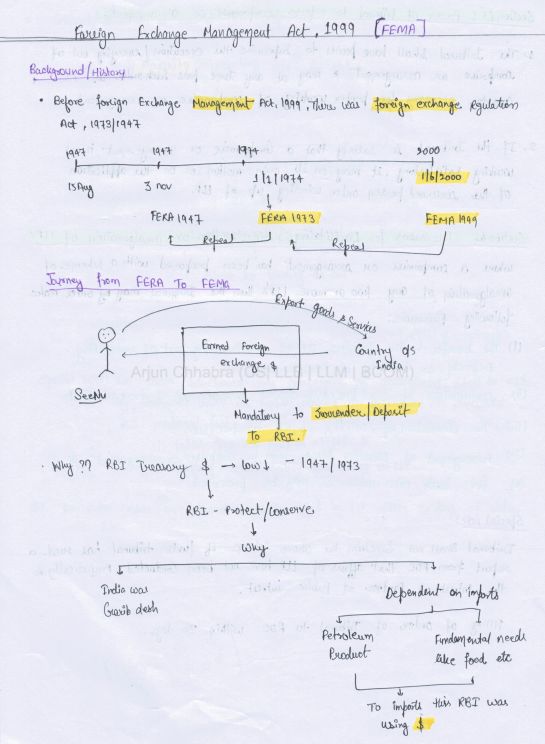 Foreign Exchange Management Act, 1999 [FEMA]
Background/History
• Before foreign Exchange Management Act, 1999, There was foreign exchange Regulation
Act, 1973/1947
1947 1947 1974 2000
15 Aug 3 nov 1/1/1974 1/6/2000
FERA 1947 FERA 1973 FEMA 1999
Repeal Repeal
Journey from FERA To FEMA
Export goods & Services
Earned Foreign
exchange $
Country o/s
India
Arjun Chhabra (CS| LLB | LLM | BCOM)
SeeNu
Mandatory to Surrender/Deposit
To RBI.
• Why ?? RBI Treasury $ → low ↓ - 1947/1973
RBI - Protect/conserve
Why
India was
Garib desh
Dependent on imports
Petroleum
Product
Fundamental needs
like food, etc
To imports this RBI was
using $